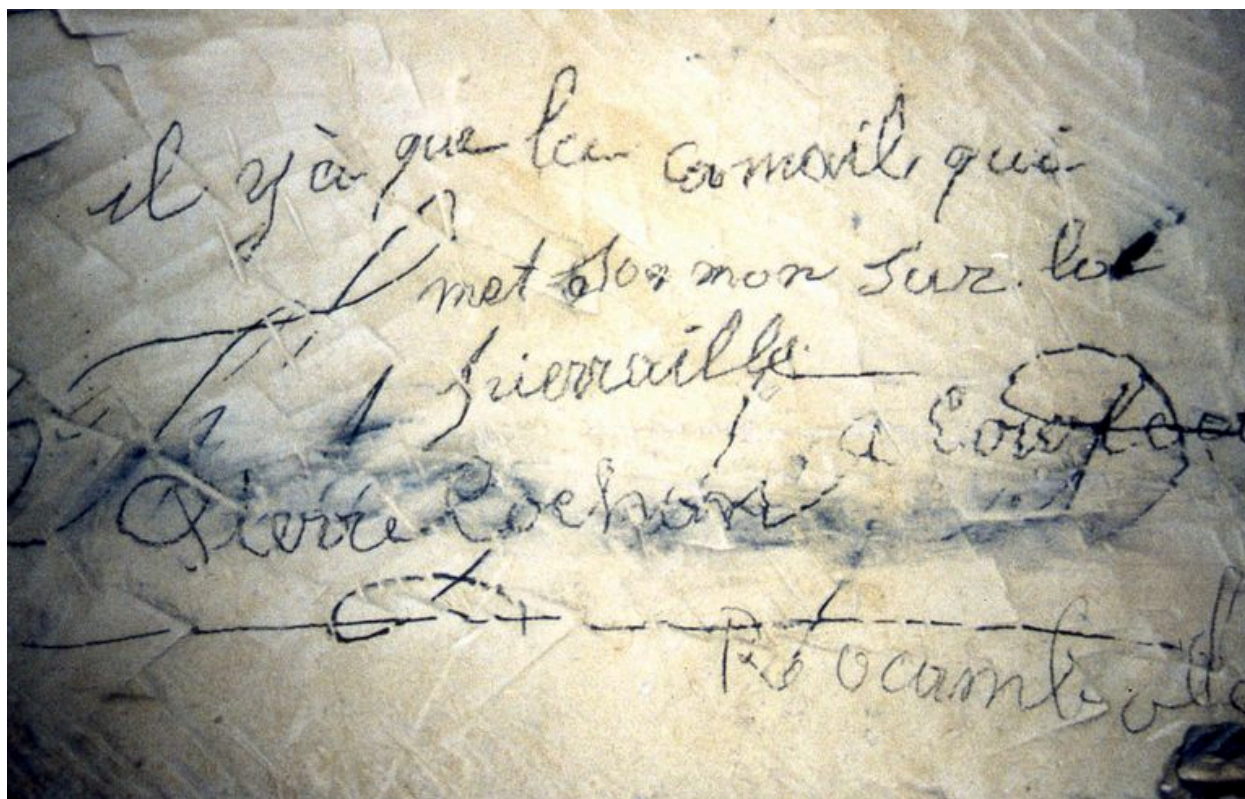 il y à que la canaille qui
met son mon sur la
pierraille
Pierre Cochon
Rocambolle